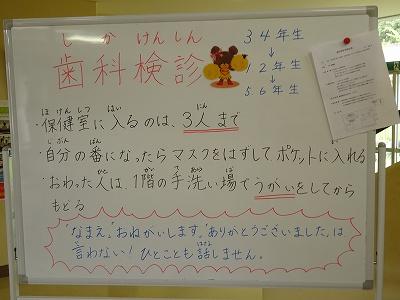 しか けんしん
歯科検診
3 4 年生
↓
1.2 年生
↓
5.6 年生
ほけんしつ はい にん
・保健室に入るのは、3人まで
じぶん ばん い
・自分の番になったら マスクをはずして ポケットに入れる
ひと かい てあら ば
・おわった人は、1階の手洗い場でうがいをしてから
もどる
"なまえ、"おねがいします、"ありがとうございました、は
い はな
言わない! ひとことも話しません。